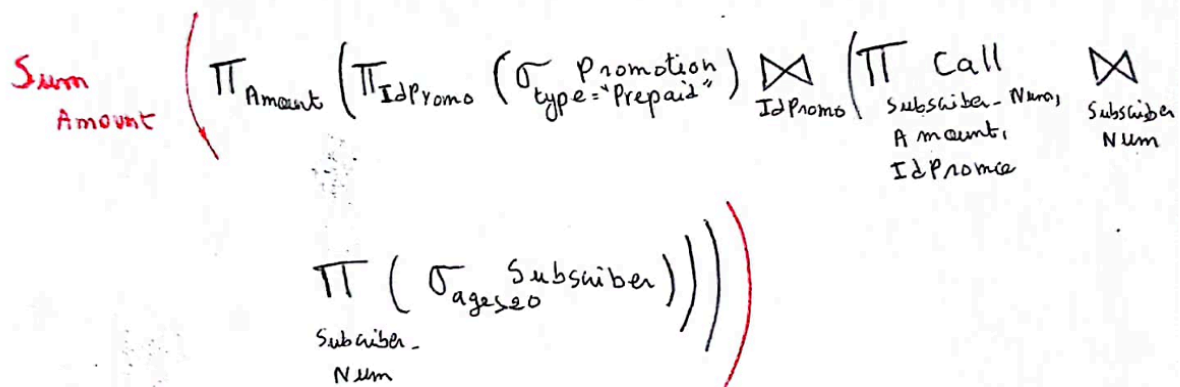 Sum Amount ( Π Amount ( Π IdPromo ( σ type="Prepaid" Promotion ) ⋈ IdPromo ( Π Subscriber-Num, Amount, IdPromo Call ⋈ Subscriber Num
Π Subscriber-Num ( σ Subscriber ) ) ) )